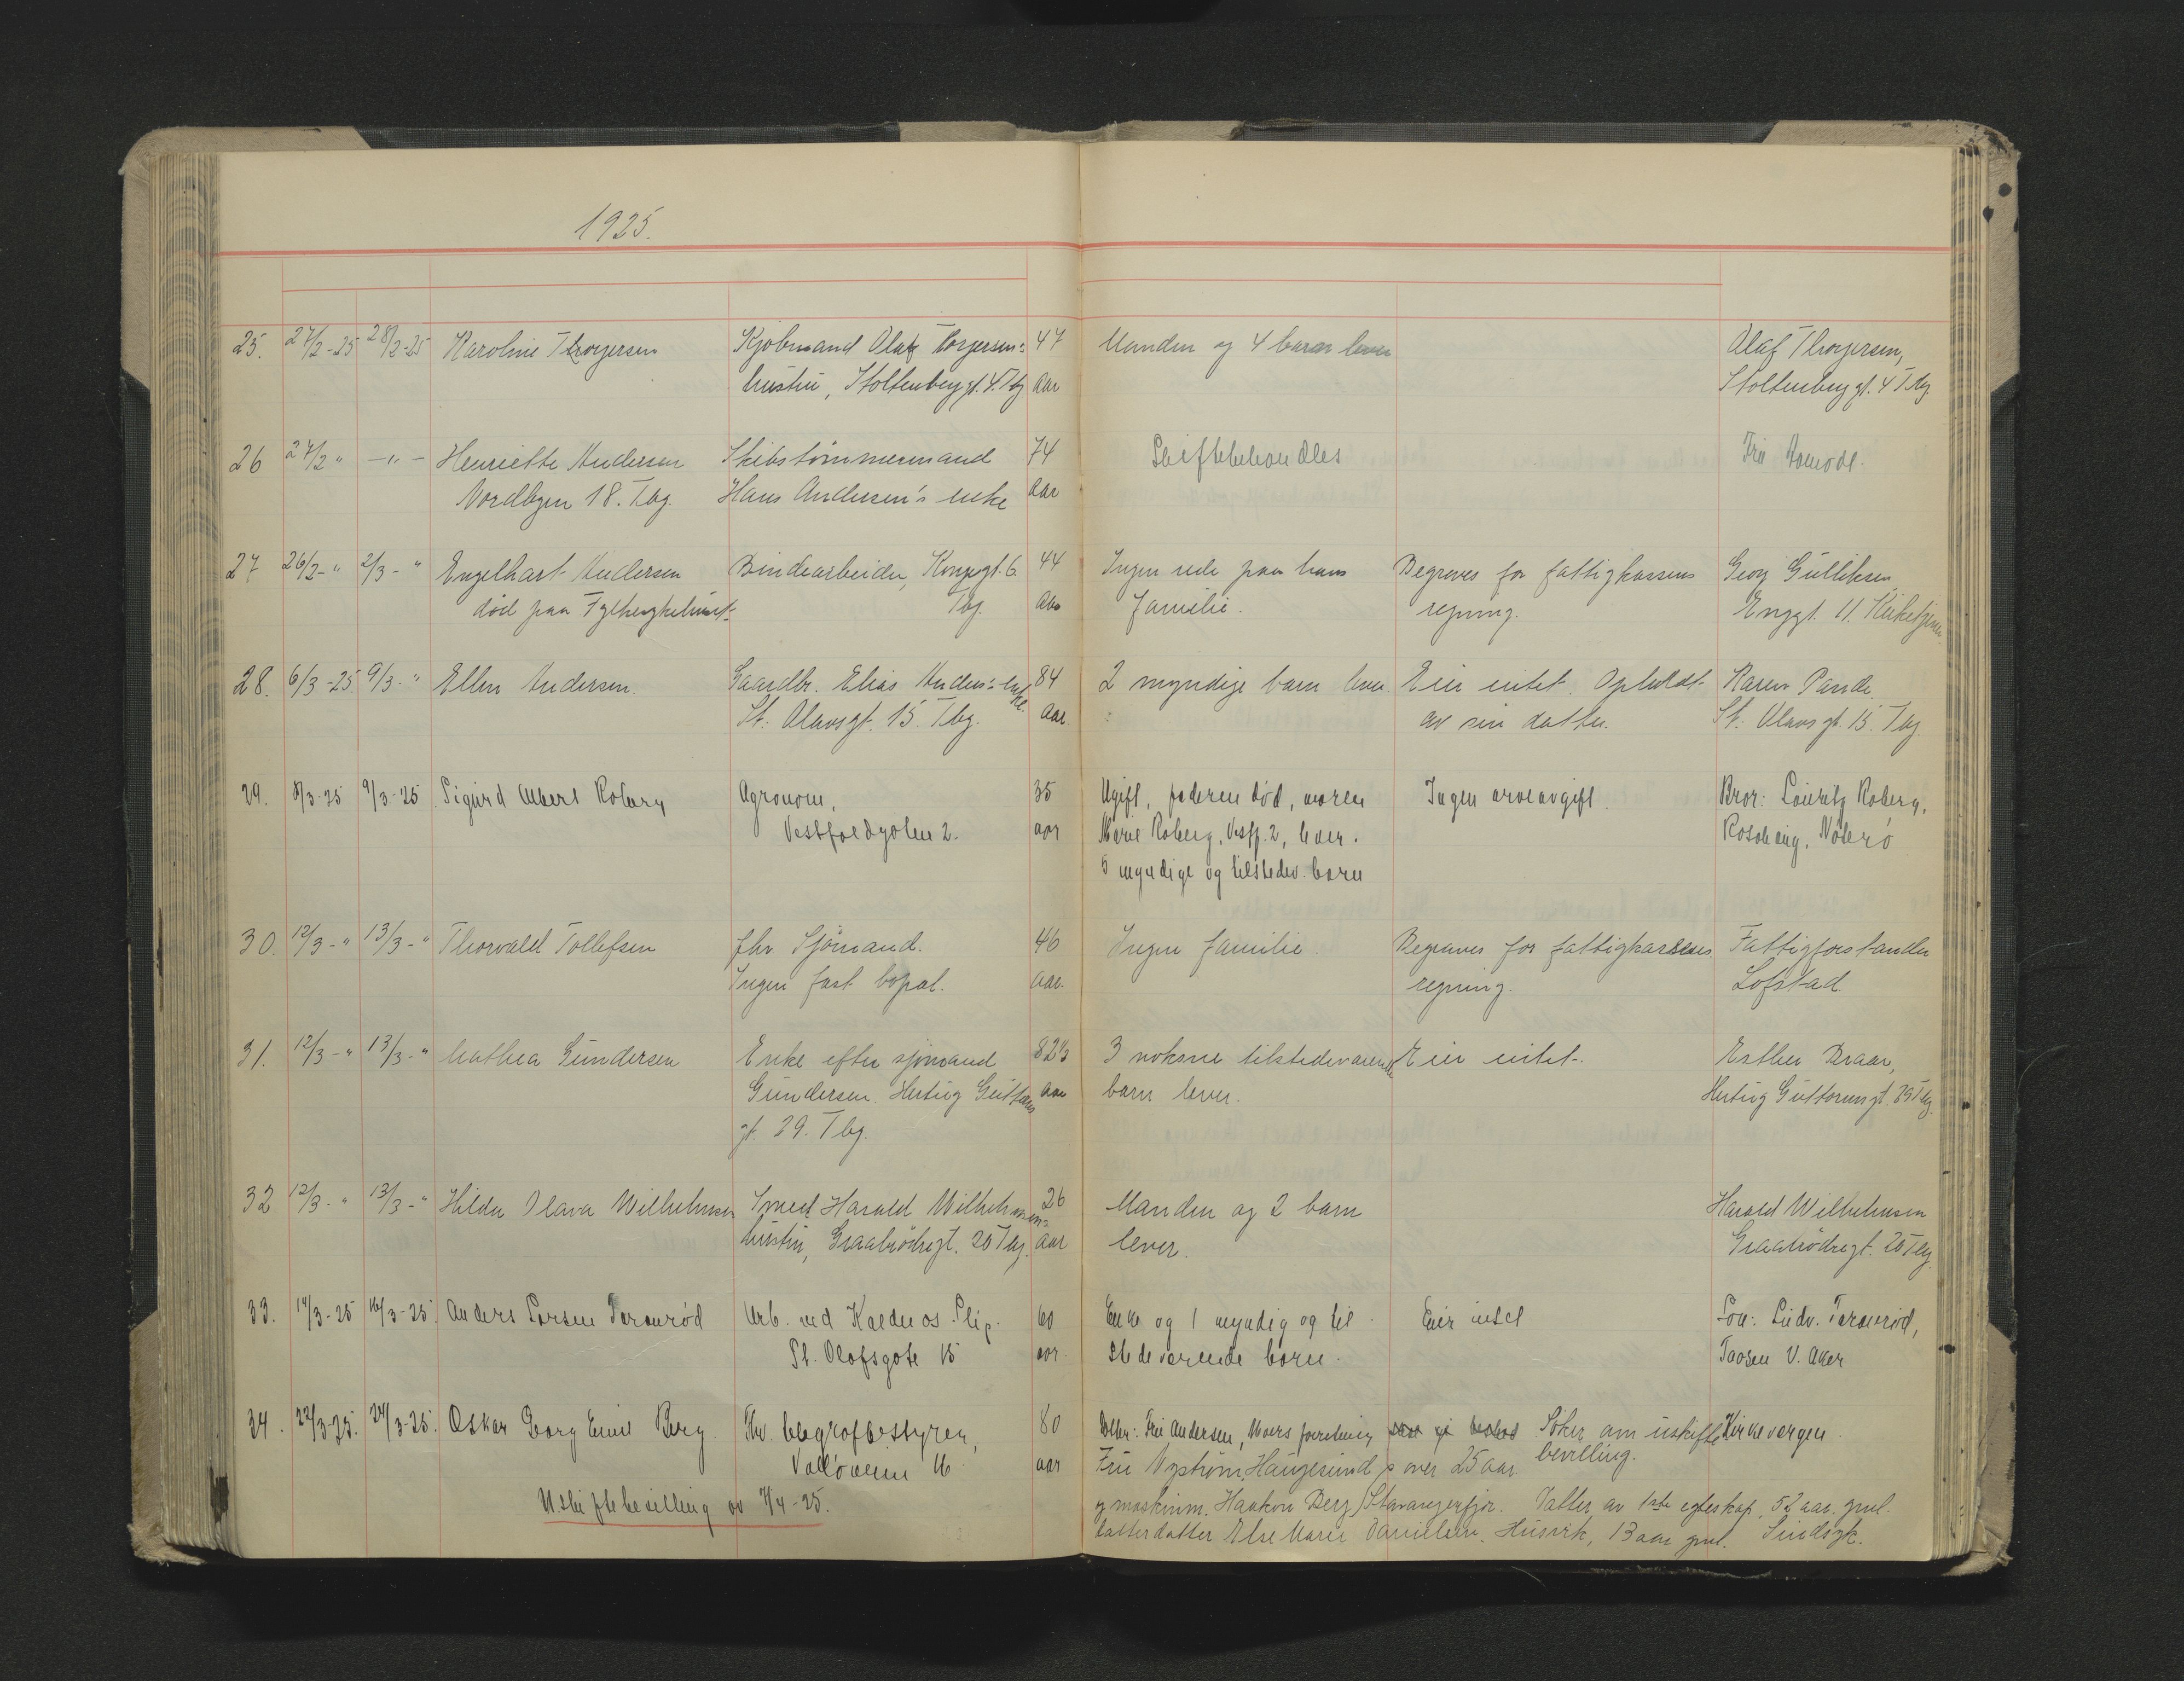 1925.
25. 27/2-25 28/2-25 Karoline Thorgersen Kjøbmand Olaf Torgersen's 47 Manden og 4 barn lever Olaf Thorgersen,
hustru, Stoltenberggt. 4. Tbg aar Stoltenberggt. 4 Tbg.
26 27/2 " -"- Henriette Andersen Skibstømmermand 74 Skiftebehandles Fru
Nordbyen 18. Tbg. Hans Andersen's enke aar
27 26/2-" 2/3-" Engelhart Andersen Bindearbeider, Kongegt. 6. 44 Ingen rede paa hans Begraves for fattigkassens Georg Gulliksen
død paa Fylkesykehuset. Tbg. aar familie. regning. Enggt. 11. Kirketjener
28. 6/3-25 9/3-" Ellen Andersen. Gaardbr. Elias Anders's enke. 84 2 myndige barn lever. Eier intet. Opholdt Karen
St. Olavsgt. 15. Tbg. aar av sin datter. St. Olavs gt. 15. Tbg.
29. 8/3-25 9/3-25 Sigurd Albert Roberg Agronom, 35 Ugift, faderen død, moren Ingen arveavgift. Bror: Lauritz Roberg,
Vestfoldgaten 2. aar Roberg, Vestf. 2, lever. Nøterø
5 myndige og tilstedev. barn
30. 12/3-" 13/3-" Thorvald Tollefsen fhv. Sjømand. 46 Ingen familie. Begraves for fattigkassens Fattigforstander
Ingen fast bopæl. aar. regning. Lofstad.
31. 12/3-" 13/3-" Mathea Gundersen Enke efter sjømand 82½ 3 voksne tilstedeværende Eier intet. Esther Braar,
Gundersen. Hertug Guttorms aar barn lever. Hertug Guttormsgt. 29 Tbg.
gt. 29. Tbg.
32 12/3-" 13/3-" Hilda Olava Wilhelmsen Smed Harald Wilhelmsen's 26 Manden og 2 barn Harald Wilhelmsen
hustru, Graabrødregt. 20 Tbg. aar lever. Graabrødregt. 20 Tbg
33. 14/3-25 16/3-25. Anders Larsen Taranrød Arb. ved Kaldnes Slip. 60 Enke og 1 myndig og til Eier intet Søn: Ludv. Taranrød,
St. Olafsgate 15 aar. stedeværende barn. V. Aker
34. 22/3-25. 24/3-25. Oskar Georg Emil Berg. Fhv. telegrafbestyrer, 80 Døtre: Fru Andersen, Moers forretning Søker om uskifte Kirkevergen.
Valløveien 16 aar Fru Nystrøm, Haugesund over 25 aar bevilling.
Uskiftebevilling av 7/4-25. og maskinm. Haakon Berg, Stavangerfjor. Datter av 1ste egteskap, 52 aar gml.
datterdatter Else Marie Danielsen, Husvik, 13 aar gml. Sindsyk.